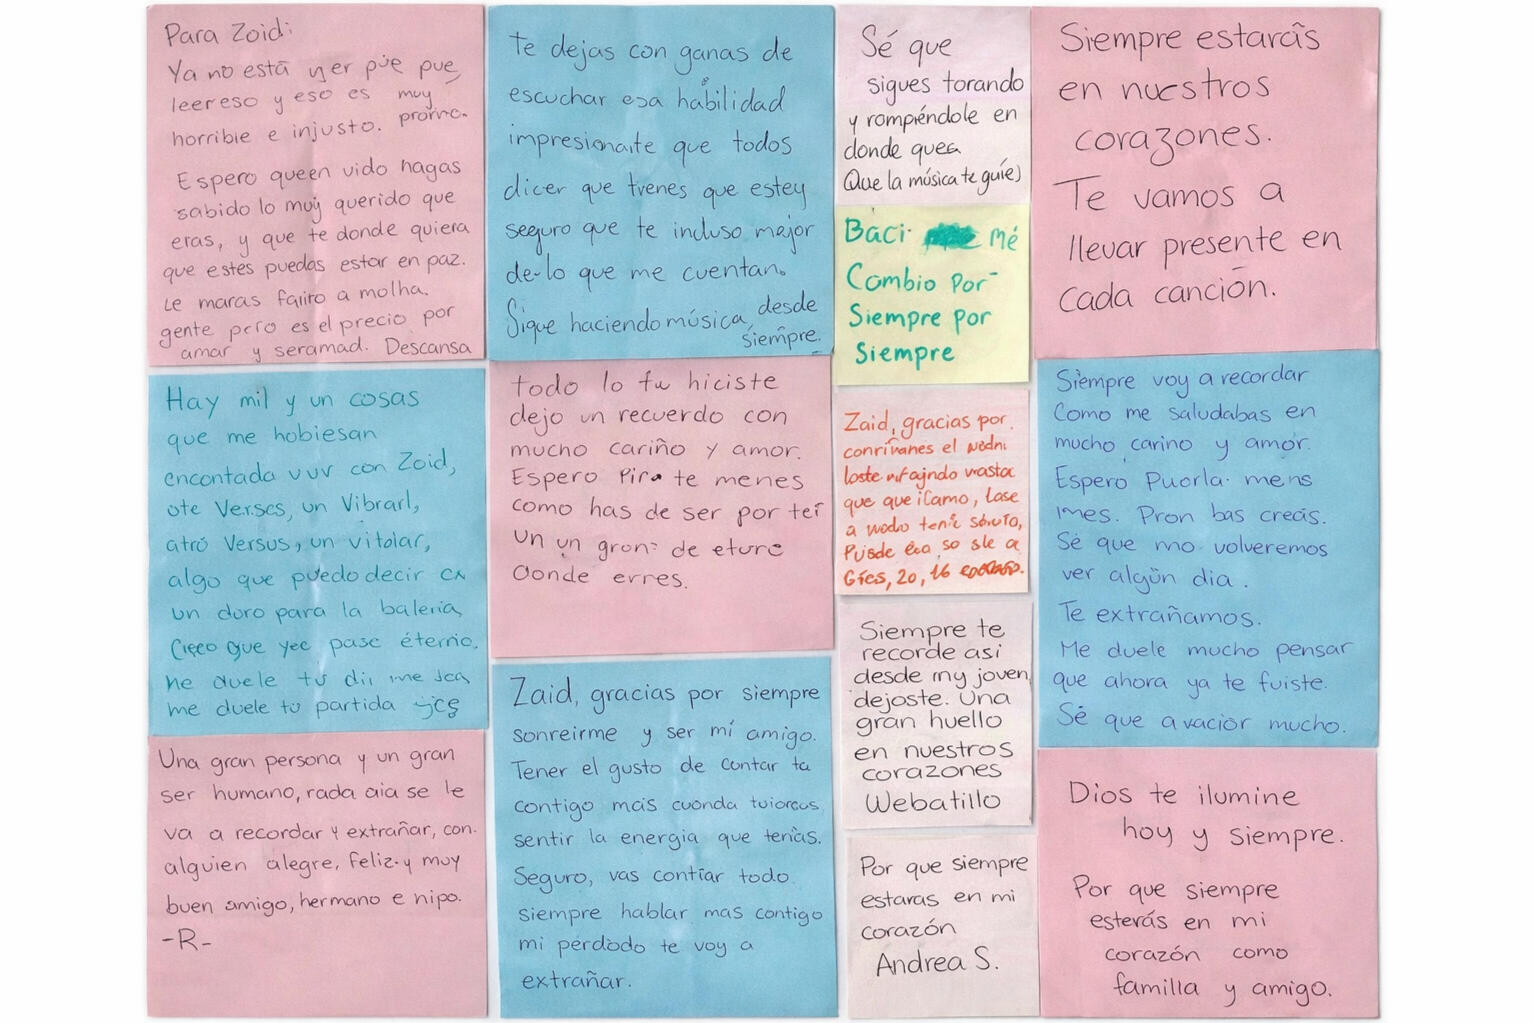 Para Zoid:
Ya no está y er púe pue
leer eso y eso es muy
horrible e injusto. promc.
Espero queen vido hagas
sabido lo muy querido que
eras, y que te donde quiera
que estes puedas estar en paz.
Le maras falito a molha.
gente pero es el precio por
amar y seramad. Descansa
Hay mil y un cosas
que me hobiesan
encontada vuv con Zoid,
ote Verses, un Vibrarl,
atró Versus, un vitolar,
algo que puedo decir en
un duro para la baleria,
Creeo que yee pase éterno.
me duele tu dii me
me duele tu partida
Una gran persona y un gran
ser humano, rada aia se le
va a recordar y extrañar, con.
alguien alegre, feliz y muy
buen amigo, hermano e nipo.
-R-
Te dejas con ganas de
escuchar esa habilidad
impresionante que todos
dicer que trenes que estey
seguro que te incluso major
de-lo que me cuentan.
Sigue haciendo música, desde
siempre.
todo lo tu hiciste
dejo un recuerdo con
mucho cariño y amor.
Espero Pira te menes
como has de ser por teí
un un gron de eture
Donde erres.
Zaid, gracias por siempre
sonreirme y ser mi amigo.
Tener el gusto de contar ta
contigo mais cuonda
sentir la energia que tenías.
Seguro, vas contíar todo.
siempre hablar mas contigo
mi pérdodo te voy a
extrañar.
Sé que
sigues torando
y rompiéndole en
donde quea
(Que la música te guíe)
Baci. mé
Cambio por
Siempre por
Siempre
Zaid, gracias por.
el
que que, lase
a tenie
Puede so sle a
20, 16
Siempre te
recorde asi
desde my joven
dejoste. Una
gran huello
en nuestros
corazones
Webatillo
Por que siempre
estaras en mi
corazón
Andrea S.
Siempre estarás
en nuestros
corazones.
Te vamos a
llevar presente en
cada canción.
Siempre voy a recordar
Como me saludabas en
mucho carino y amor.
Espero Puorla. mens
imes. Pron bas creás.
Sé que mo volveremos
ver algün dia.
Te extrañamos.
Me duele mucho pensar
que ahora ya te fuiste.
Sé que avacior mucho.
Dios te ilumine
hoy y siempre.
Por que siempre
esterás en mi
corazón como
familla y amigo.